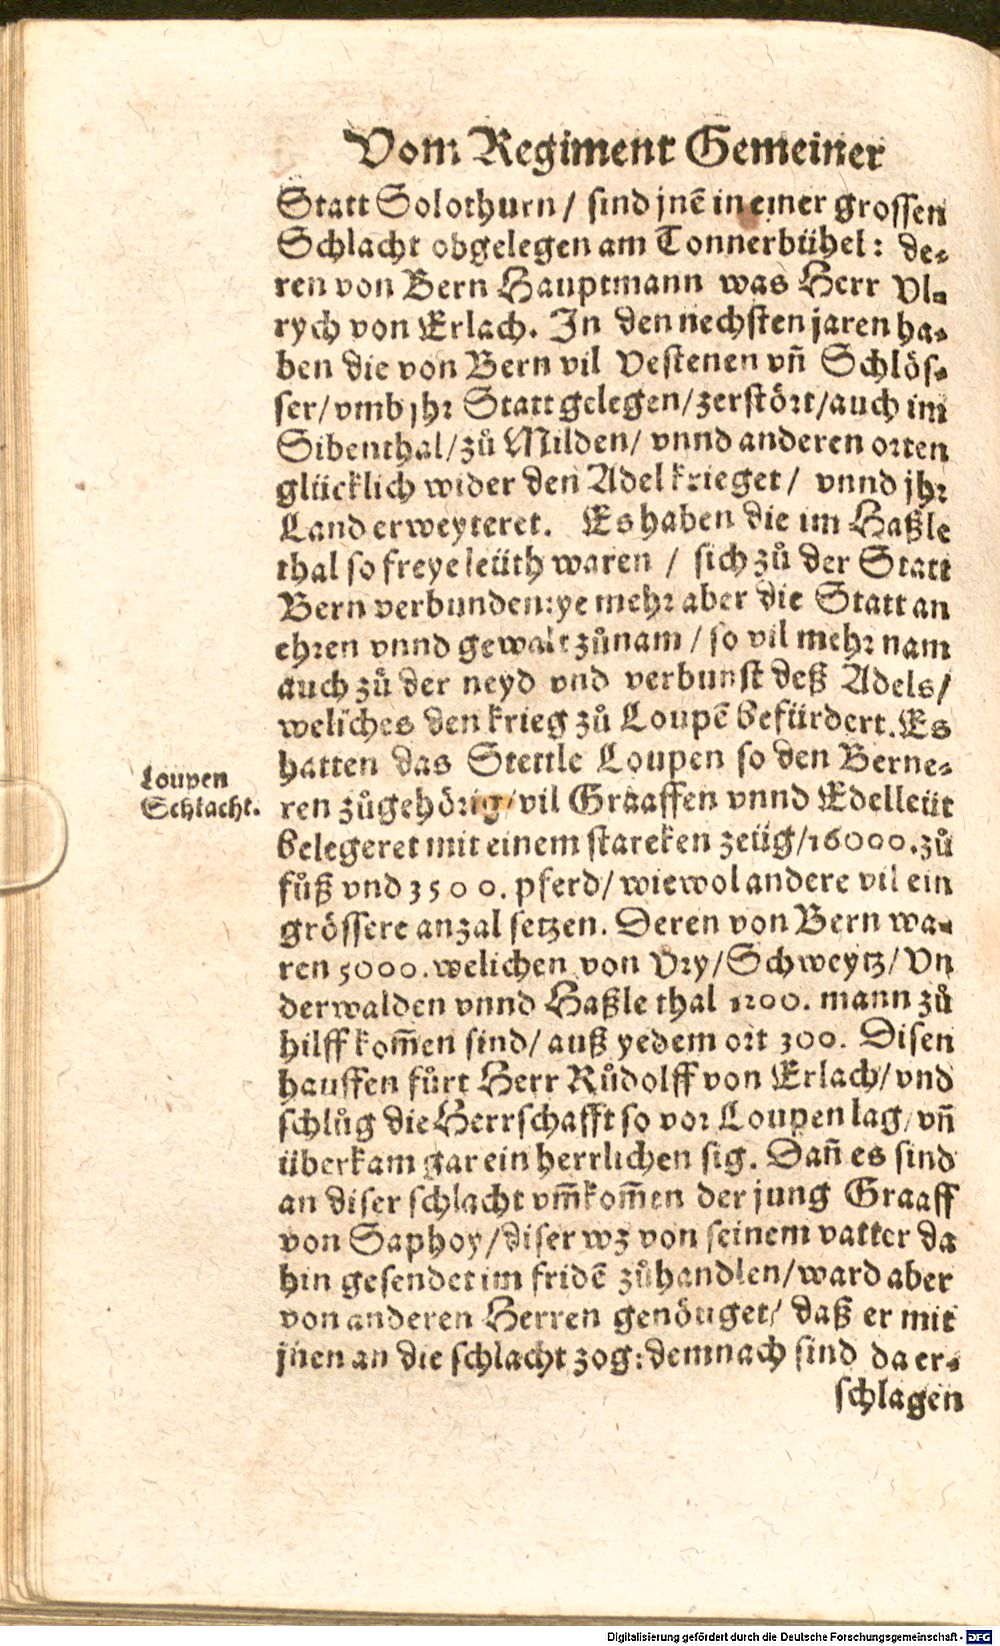 Vom Regiment Gemeiner
Statt Solothurn / sind jnẽ in einer grossen
Schlacht obgelegen am Tonnerbühel: de⸗
ren von Bern Hauptmann was Herr Vl⸗
rych von Erlach. In den nechsten jaren ha⸗
ben die von Bern vil Vestenen vñ Schlös⸗
ser/ vmb jhr Statt gelegen/ zerstört/ auch im
Sibenthal/ zů Milden/ vnnd anderen orten
glücklich wider den Adel krieget / vnnd jhr
Land erweyteret. Es haben die im Haßle
thal so freye leüth waren / sich zů der Statt
Bern verbunden: ye mehr aber die Statt an
ehren vnnd gewalt zůnam / so vil mehr nam
auch zů der neyd vnd verbunst deß Adels/
weliches den krieg zů Loupẽ befürdert. Es
hatten das Stettle Loupen so den Berne⸗
Loupen
Schlacht.
ren zůgehörig/ vil Graaffen vnnd Edelleüt
belegeret mit einem starcken zeüg/ 16000. zů
fůß vnd 3500. pferd/ wiewol andere vil ein
grössere anzal setzen. Deren von Bern wa⸗
ren 5000. welichen von Vry/ Schweytz/ Vn
derwalden vnnd Haßle thal 1200. mann zů
hilff kom̃en sind/ auß yedem ort 300. Disen
hauffen fůrt Herr Růdolff von Erlach/ vnd
schlůg die Herrschafft so vor Loupen lag/ vñ
überkam gar ein herrlichen sig. Dañ es sind
an diser schlacht vm̃kom̃en der jung Graaff
von Saphoy/ diser wz von seinem vatter da
hin gesendet im fridẽ zůhandlen/ ward aber
von anderen Herren genötiget/ daß er mit
jnen an die schlacht zog: demnach sind da er⸗
schlagen
Digitalisierung gefördert durch die Deutsche Forschungsgemeinschaft - DFG